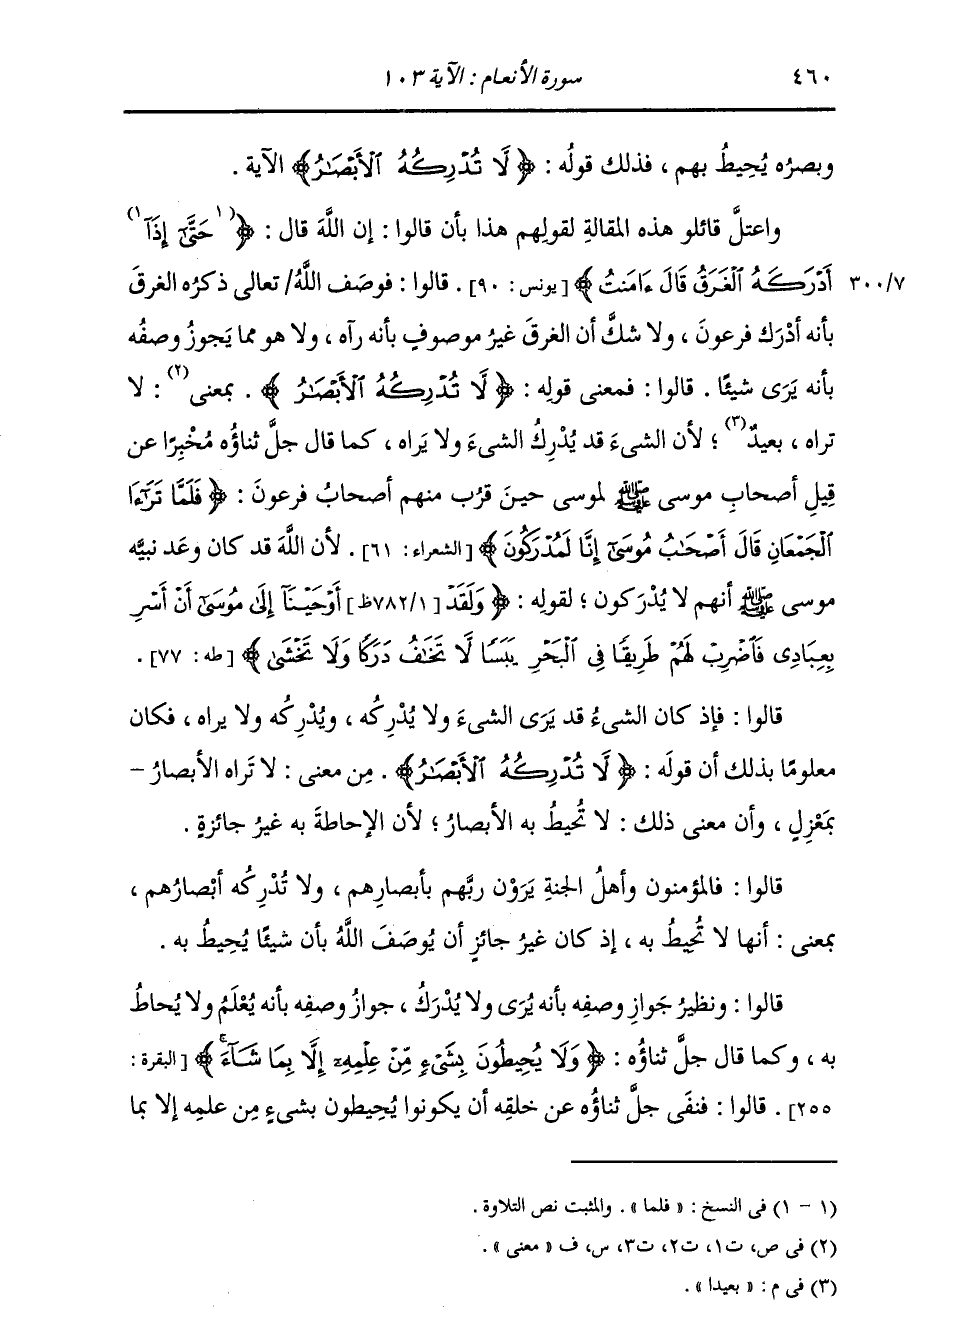 ٤٦٠ سورة الأنعام : الآية ١٠٣
وبصرُه يُحِيطُ بهم ، فذلك قولُه : ﴿ لَّا تُدْرِكُهُ ٱلْأَبْصَـٰرُ ﴾ الآية .
واعتلَّ قائلو هذه المقالةِ لقولِهم هذا بأن قالوا : إن اللَّهَ قال : ﴿ (١ حَتَّىٰٓ إِذَآ ١)
٣٠٠/٧ أَدْرَكَهُ ٱلْغَرَقُ قَالَ ءَامَنتُ ﴾ [يونس : ٩٠] . قالوا : فوصَف اللَّهُ/ تعالى ذكرُه الغرقَ
بأنه أدْرَك فرعونَ ، ولا شكَّ أن الغرقَ غيرُ موصوفٍ بأنه رآه ، ولا هو مما يَجوزُ وصفُه
بأنه يَرَى شيئًا . قالوا : فمعنى قولِه : ﴿ لَّا تُدْرِكُهُ ٱلْأَبْصَـٰرُ ﴾ . بمعنى (٢) : لا
تراه ، بعيدٌ (٣) ؛ لأن الشىءَ قد يُدْرِكُ الشىءَ ولا يَراه ، كما قال جلَّ ثناؤُه مُخْبِرًا عن
قِيلِ أصحابِ موسى ﷺ لموسى حينَ قرُب منهم أصحابُ فرعونَ : ﴿ فَلَمَّا تَرَٰٓءَا
ٱلْجَمْعَانِ قَالَ أَصْحَـٰبُ مُوسَىٰٓ إِنَّا لَمُدْرَكُونَ ﴾ [الشعراء : ٦١] . لأن اللَّهَ قد كان وعَد نبيَّه
موسى ﷺ أنهم لا يُدْرَكون ؛ لقولِه : ﴿ وَلَقَدْ [٧٨٢/١ظ] أَوْحَيْنَآ إِلَىٰ مُوسَىٰٓ أَنْ أَسْرِ
بِعِبَادِى فَٱضْرِبْ لَهُمْ طَرِيقًا فِى ٱلْبَحْرِ يَبَسًا لَّا تَخَـٰفُ دَرَكًا وَلَا تَخْشَىٰ ﴾ [طه : ٧٧] .
قالوا : فإذ كان الشىءُ قد يَرَى الشىءَ ولا يُدْرِكُه ، ويُدْرِكُه ولا يراه ، فكان
معلومًا بذلك أن قولَه : ﴿ لَّا تُدْرِكُهُ ٱلْأَبْصَـٰرُ ﴾ . مِن معنى : لا تَراه الأبصارُ –
بمَعْزِلٍ ، وأن معنى ذلك : لا تُحيطُ به الأبصارُ ؛ لأن الإحاطةَ به غيرُ جائزةٍ .
قالوا : فالمؤمنون وأهلُ الجنةِ يَرَوْن ربَّهم بأبصارِهم ، ولا تُدْرِكُه أبْصارُهم ،
بمعنى : أنها لا تُحيطُ به ، إذ كان غيرُ جائزٍ أن يُوصَفَ اللَّهُ بأن شيئًا يُحِيطُ به .
قالوا : ونظيرُ جَوازِ وصفِه بأنه يُرَى ولا يُدْرَكُ ، جوازُ وصفِه بأنه يُعْلَمُ ولا يُحاطُ
به ، وكما قال جلَّ ثناؤُه : ﴿ وَلَا يُحِيطُونَ بِشَىْءٍ مِّنْ عِلْمِهِۦٓ إِلَّا بِمَا شَآءَ ۚ ﴾ [البقرة :
٢٥٥] . قالوا : فنفَى جلَّ ثناؤُه عن خلقِه أن يكونوا يُحيطون بشىءٍ مِن علمِه إلا بما
(١ – ١) فى النسخ : « فلما » . والمثبت نص التلاوة .
(٢) فى ص، ت١، ت٢، ت٣، س، ف « معنى » .
(٣) فى م : « بعيدا » .